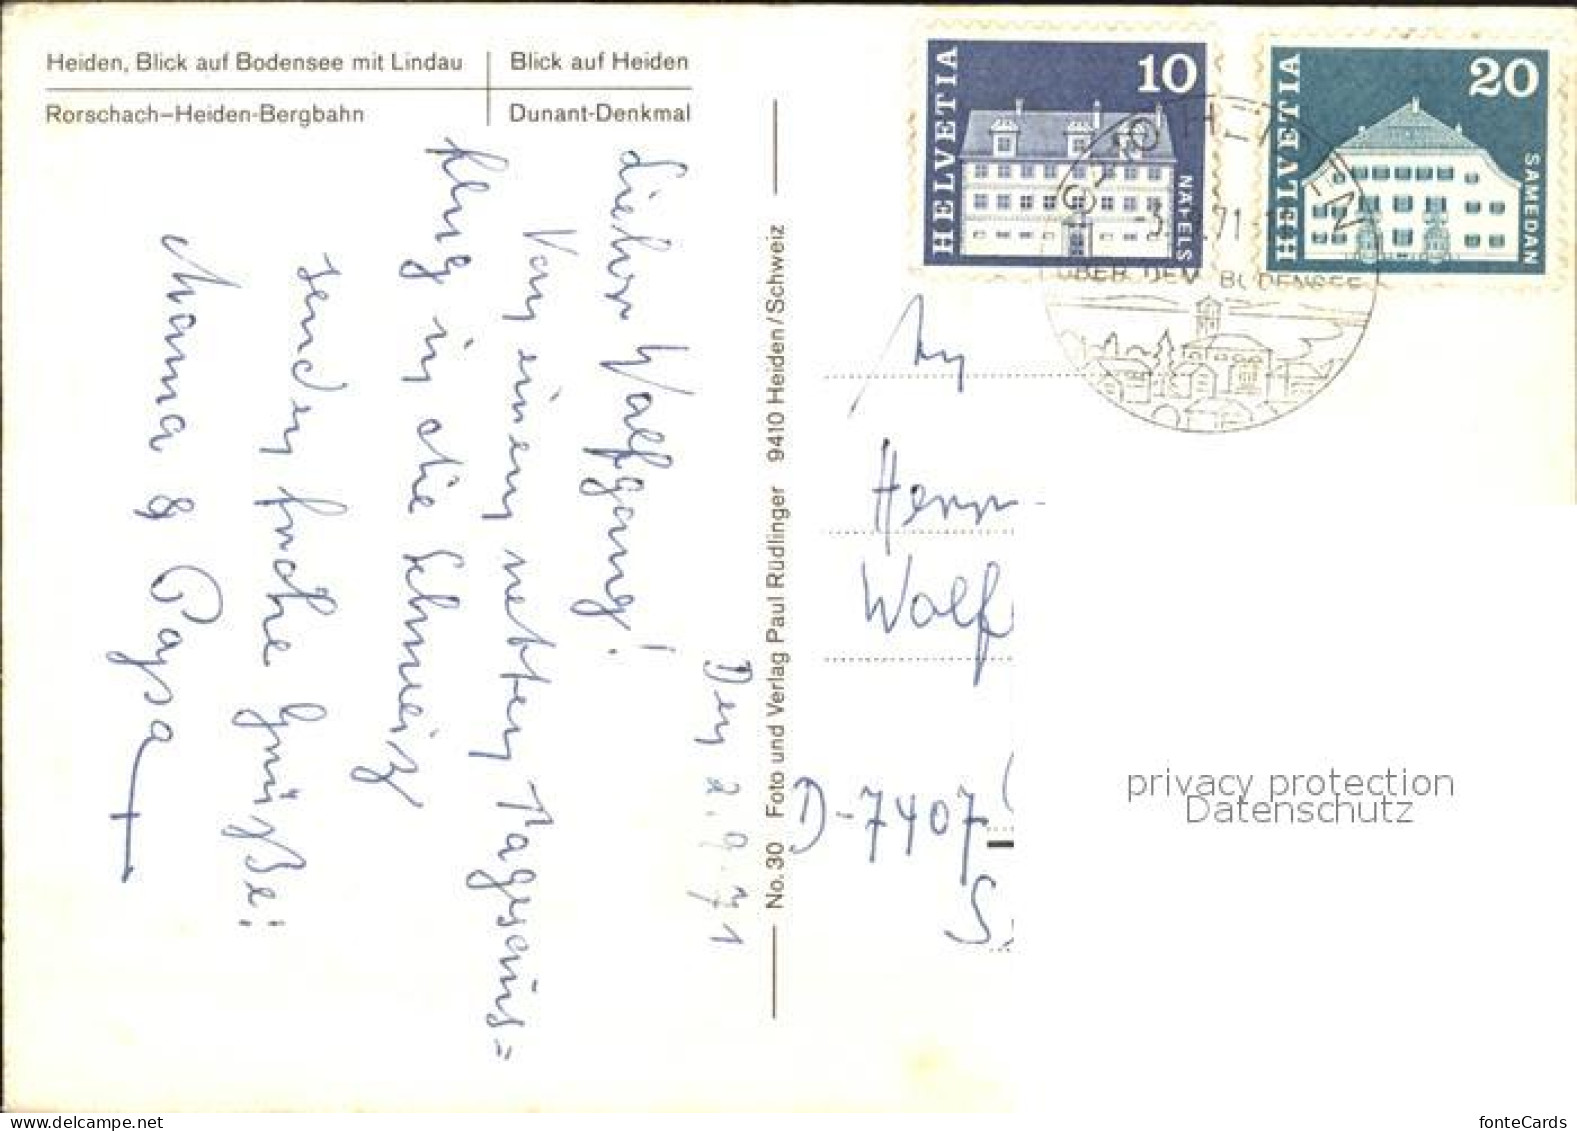 Heiden, Blick auf Bodensee mit Lindau
Blick auf Heiden
Rorschach–Heiden-Bergbahn
Dunant-Denkmal
Den 2.9.71
Lieber Wolfgang!
Von einem netten Tagesaus=
flug in die Schweiz
senden frohe Grüße!
Mama & Papa
No. 30 Foto und Verlag Paul Rüdlinger 9410 Heiden/Schweiz
HELVETIA
10
NÄFELS
HELVETIA
20
SAMEDAN
71
ÜBER DEM BODENSEE
An
Herrn
Wolf
D-7407
privacy protection
Datenschutz
fonteCards